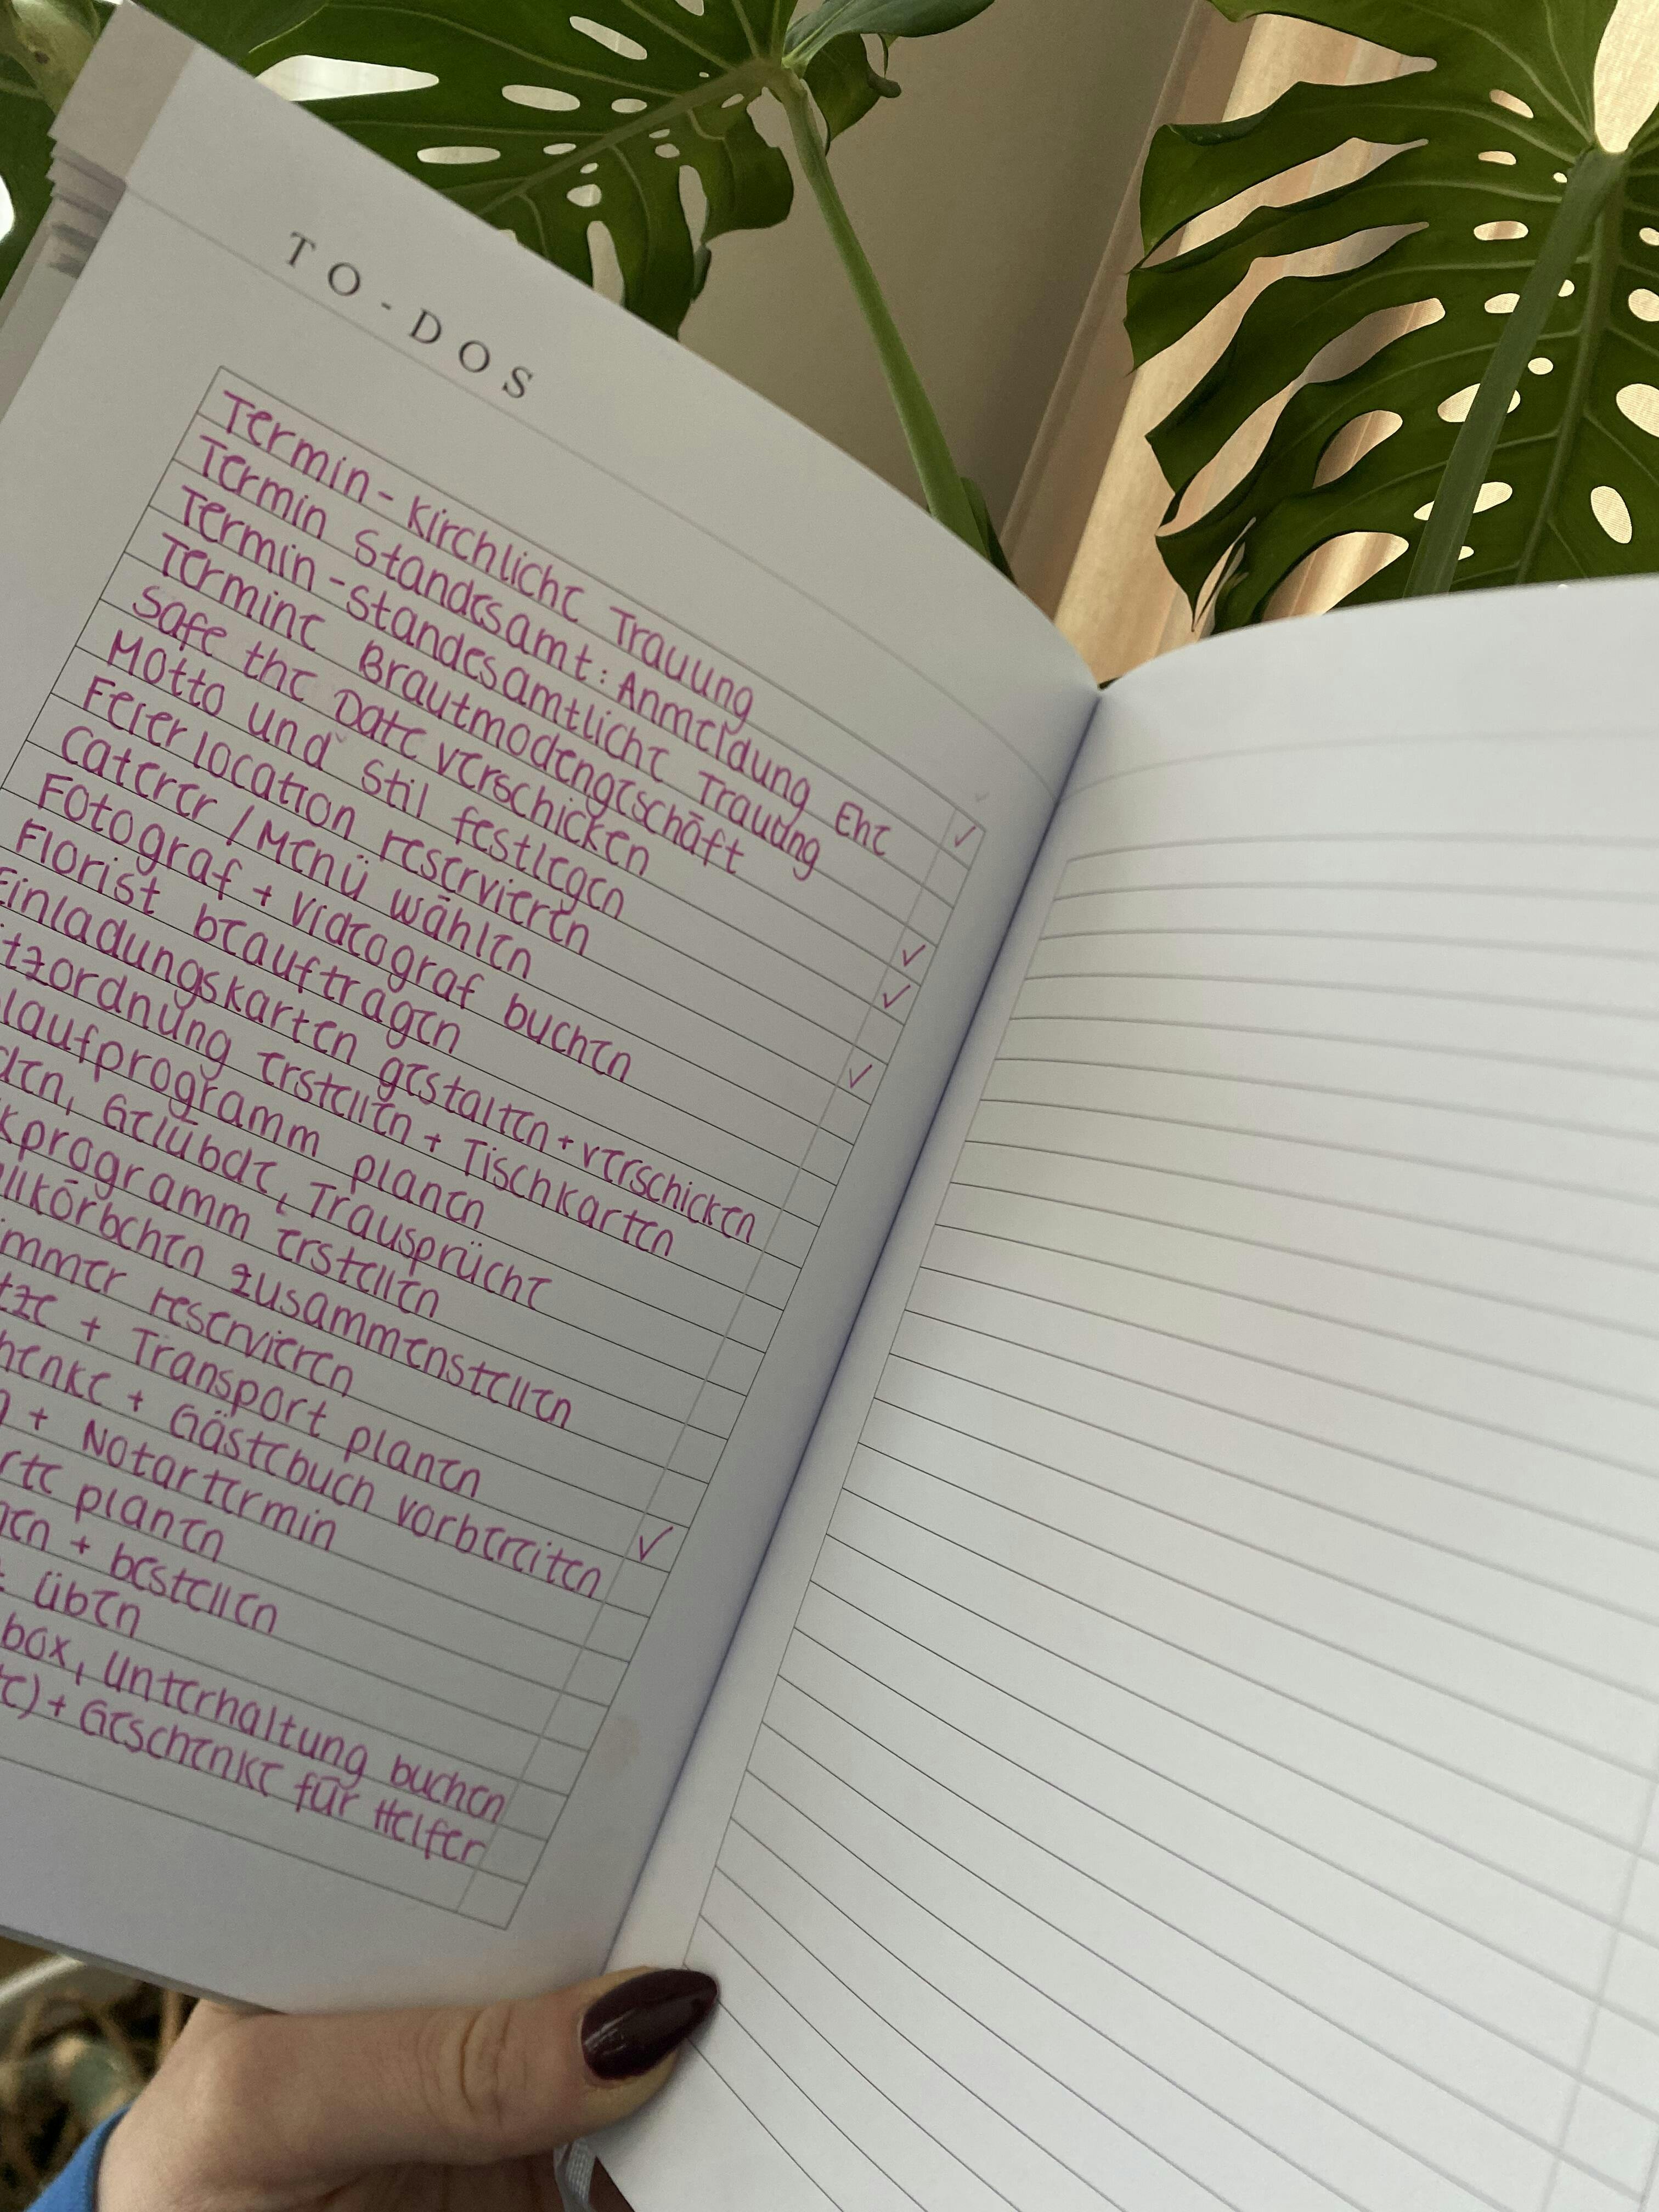 TO-DOS
Termin - Kirchliche Trauung ✓
Termin Standesamt: Anmeldung Ehe
Termin - Standesamtliche Trauung
Termine Brautmodengeschäft ✓
Safe the Date verschicken ✓
Motto und Stil festlegen
Feierlocation reservieren ✓
Caterer / Menü wählen
Fotograf + Videograf buchen
Florist beauftragen
Einladungskarten gestalten + verschicken
tzordnung erstellen + Tischkarten
laufprogramm planen
den, Gelübde, Trausprüche
kprogramm erstellen
llkörbchen zusammenstellen
immer reservieren
tze + Transport planen ✓
henke + Gästebuch vorbereiten
+ Notartermin
rte planen
en + bestellen
üben
box, Unterhaltung buchen
te) + Geschenke für Helfer